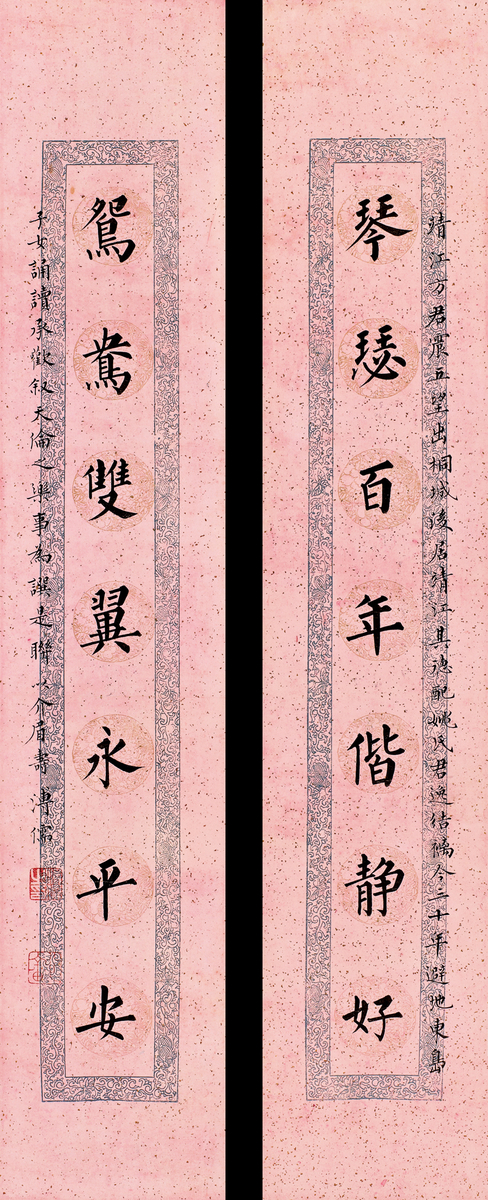 靖江方君震五望出桐城後居靖江其德配姚氏君逸结褵今二十年避地東島
琴瑟百年偕静好
鴛鴦雙翼永平安
子女誦讀承歡叙天倫之樂事為譔是聯以介眉壽溥儒